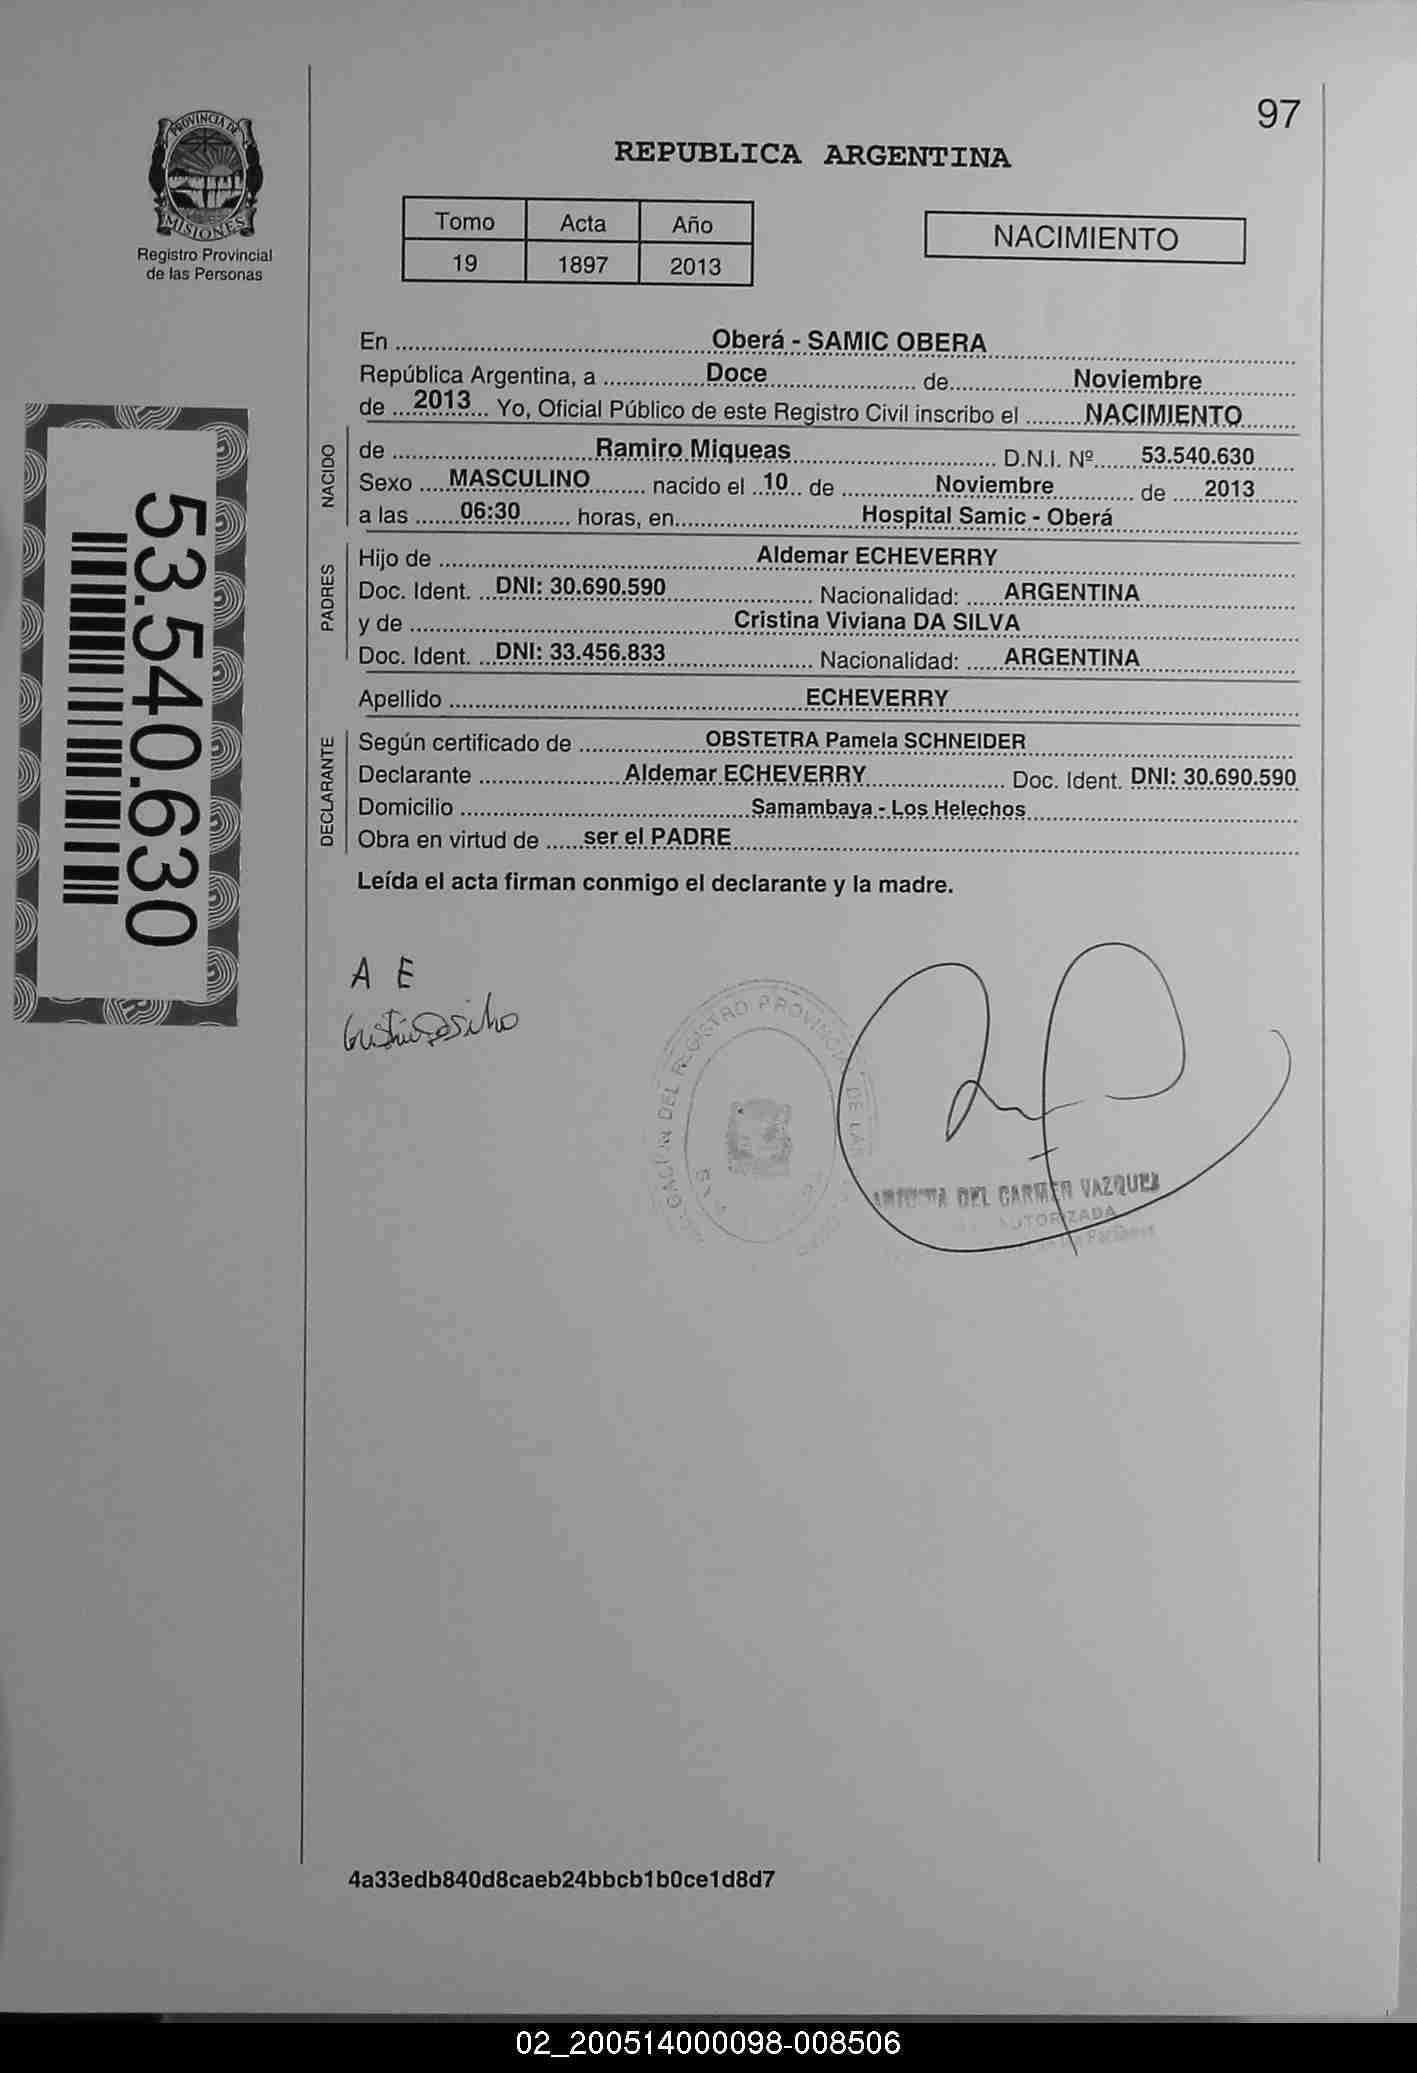 97
PROVINCIA DE
MISIONES
Registro Provincial
de las Personas
REPUBLICA ARGENTINA
Tomo Acta Año
19 1897 2013
NACIMIENTO
53.540.630
En Oberá - SAMIC OBERA
República Argentina, a Doce de Noviembre
de 2013 Yo, Oficial Público de este Registro Civil inscribo el NACIMIENTO
NACIDO
de Ramiro Miqueas D.N.I. Nº 53.540.630
Sexo MASCULINO nacido el 10 de Noviembre de 2013
a las 06:30 horas, en Hospital Samic - Oberá
PADRES
Hijo de Aldemar ECHEVERRY
Doc. Ident. DNI: 30.690.590 Nacionalidad: ARGENTINA
y de Cristina Viviana DA SILVA
Doc. Ident. DNI: 33.456.833 Nacionalidad: ARGENTINA
Apellido ECHEVERRY
DECLARANTE
Según certificado de OBSTETRA Pamela SCHNEIDER
Declarante Aldemar ECHEVERRY Doc. Ident. DNI: 30.690.590
Domicilio Samambaya - Los Helechos
Obra en virtud de ser el PADRE
Leída el acta firman conmigo el declarante y la madre.
A E
DEL REGISTRO PROVINCIAL DE LAS
DEL CARMEN VAZQUEZ
AUTORIZADA
4a33edb840d8caeb24bbcb1b0ce1d8d7
02_200514000098-008506